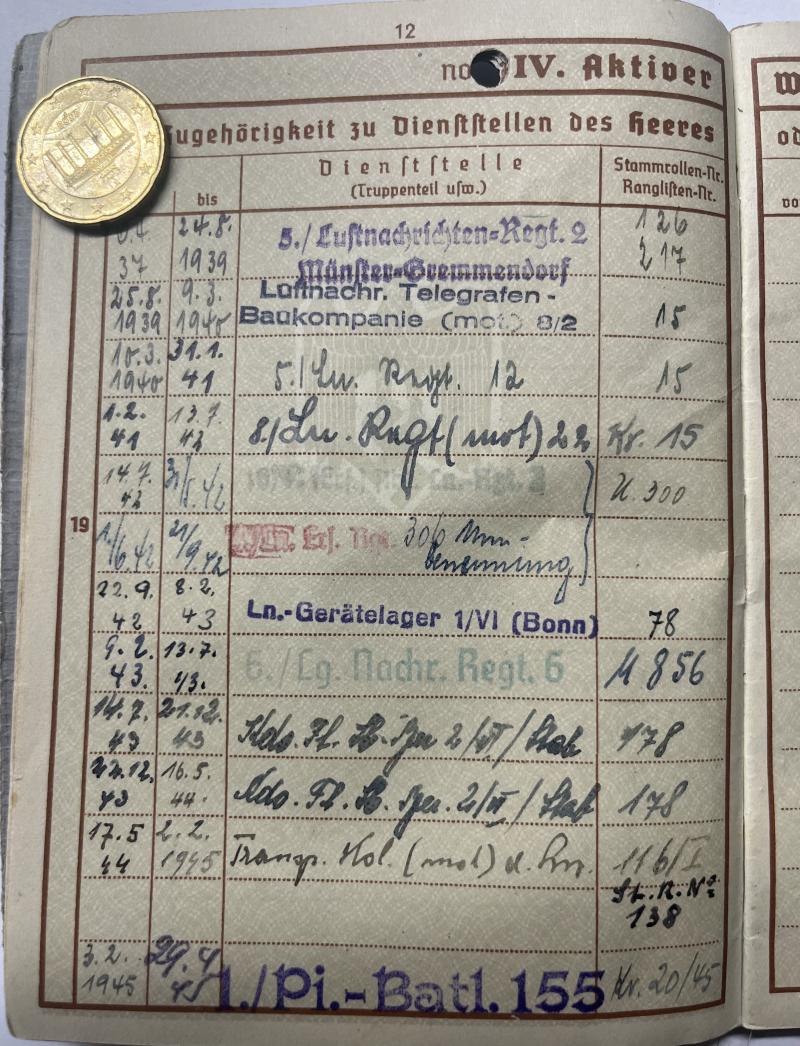 12
noch IV. Aktiver
Zugehörigkeit zu Dienststellen des Heeres
bis
Dienststelle
(Truppenteil usw.)
Stammrollen-Nr.
Ranglisten-Nr.
37
24.8.
1939
5./Luftnachrichten-Regt. 2
Münster-Gremmendorf
126
217
25.8.
1939
9.3.
1940
Luftnachr. Telegrafen-
Baukompanie (mot.) 8/2
15
10.3.
1940
31.1.
41
5./Ln. Regt. 12
15
1.2.
41
13.7.
42
8./Ln. Regt (mot) 22
Kr. 15
14.7.
42
31/5.42
U. 300
19
1/6.42
21/9.42
Ers. 306 Um-
benennung
22.9.
42
8.2.
43
Ln.-Gerätelager 1/VI (Bonn)
78
9.2.
43.
13.7.
43.
6./Lg. Nachr. Regt. 6
M 856
14.7.
43
21.12.
43
Kdo. Fl. 2/VI/Stab
178
22.12.
43
16.5.
44.
Kdo. Fl. 2/VI/Stab
178
17.5
44
2.2.
1945
Transp. Kol. (mot) d. Ln.
116/I
St. R. No
138
3.2.
1945
29.4
45
1./Pi.-Batl. 155
Kr. 20/45